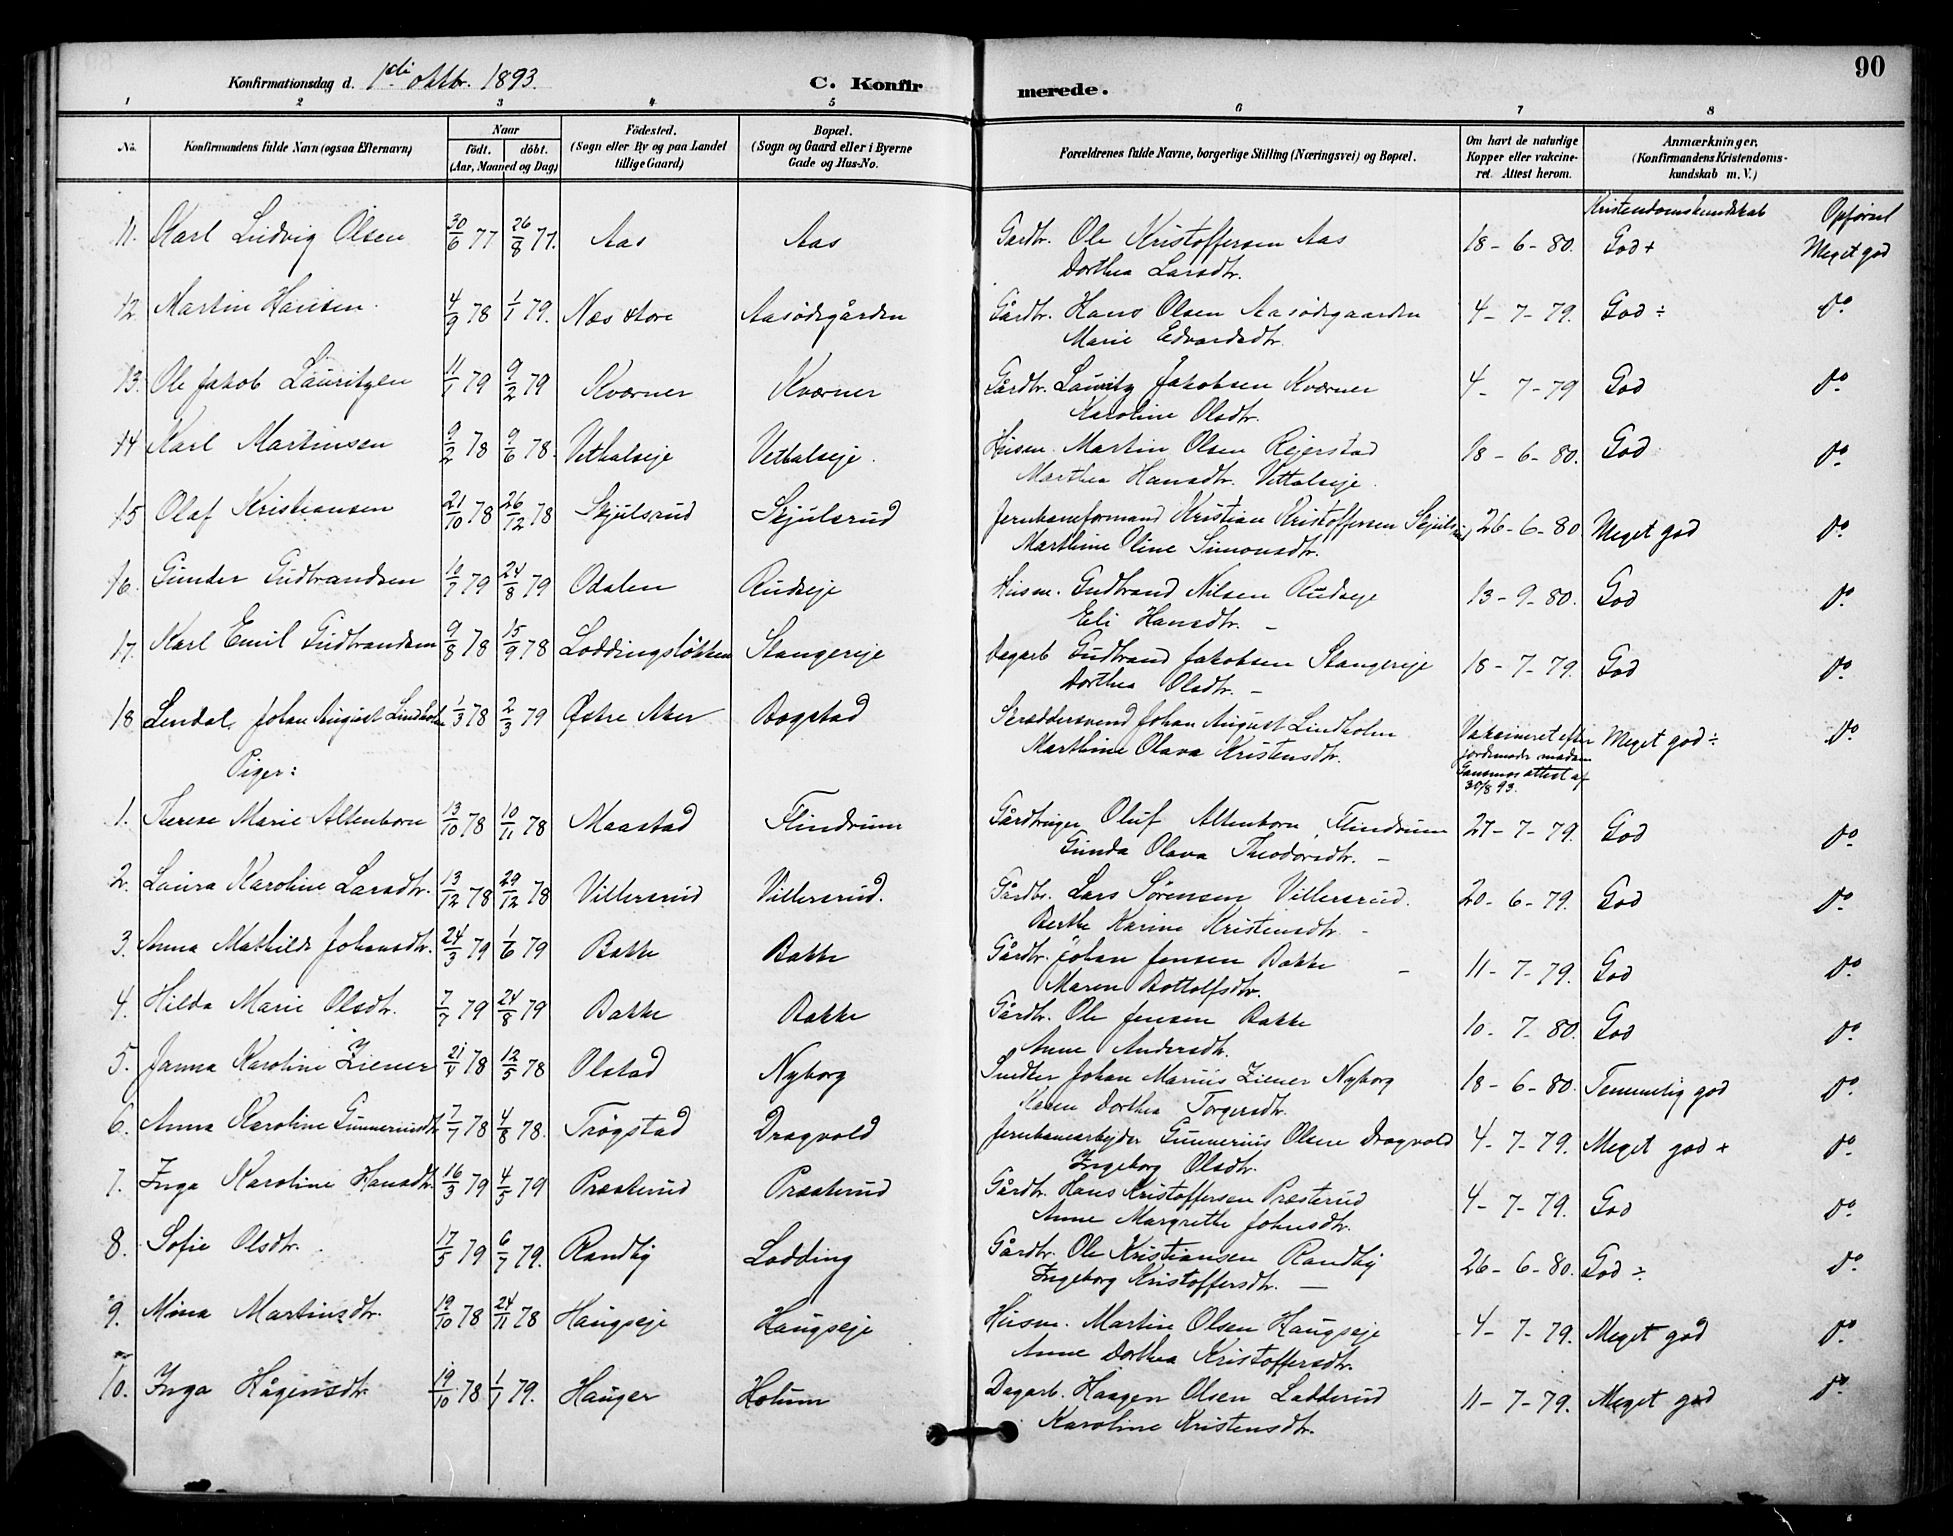 90
Konfirmationsdag d. 1ste oktbr. 1893.
C. Konfirmerede.
1 2 3 4 5 6 7 8
No.
Konfirmandens fulde Navn (ogsaa Efternavn)
Naar
födt. döbt.
(Aar, Maaned og Dag)
Födested.
(Sogn eller By og paa Landet
tillige Gaard)
Bopæl.
(Sogn og Gaard eller i Byerne
Gade og Hus-No.
Forældrenes fulde Navne, borgerlige Stilling (Næringsvei) og Bopæl.
Om havt de naturlige
Kopper eller vakcine-
ret. Attest herom.
Anmærkninger.
(Konfirmandens Kristendoms-
kundskab m. V.)
Kristendomskundskab Opførsel
11. Karl Ludvig Olsen 30/6 77 26/8 77. Aas Aas Gårdbr. Ole Kristoffersen Aas 18-6-80. God+ Meget god
Dorthea Larsdtr.
12. Martin Hansen. 4/9 78 1/1 79. Næs store Aasødegården Gårdbr. Hans Olsen Aasødegaarden 4-7-79. God ÷ do.
Marie Edvardsdtr.
13. Ole Jakob Lauritzen 11/1 79 9/2 79 Kværner Kværner Gårdbr. Lauritz Jakobsen Kværner 4-7-79 God do.
Karoline Olsdtr.
14 Karl Martinsen 9/2 78 9/6 78. Vethalseje Vethalseje. Husm. Martin Olsen Rejerstad 18-6-80. God do.
Marthea Hansdtr. Vittalseje.
15 Olaf Kristiansen 21/10 78 26/12 78 Skjulsrud Skjulsrud Jernbaneformand Kristian Kristoffersen Skjulsrud 26-6-80 Meget god do.
Marthine Oline Simonsdtr.
16. Gunder Gudbrandsen 10/7 79 24/8 79 Odalen Rudseje Husm. Gudbrand Nilsen Rudseje 13-9-80. God do.
Eli Hansdtr. -
17. Karl Emil Gudbrandsen 9/8 78 15/9 78 Loddingsløkken Stangereje Dagarb. Gudbrand Jakobsen Stangereje 18-7-79. God do.
Dorthea Olsdtr. -
18 Lendal. Johan August Lindholm 1/3 78 2/3 79 Østre Aker Bogstad Skræddersvend Johan August Lindholm Vakcineret efter Meget god ÷ do.
Marthine Olava Kristensdtr. jordemoder madam
attest af
30/8 93.
Piger:
1. Therese Marie Altenborn 13/10 78 10/11 78 Maastad Flindrum Gårdbruger Oluf Altenborn Flindrum 27-7-79. God do.
Gunda Olava Theodorsdtr. -
2. Laura Karoline Larsdtr. 13/12 78 29/12 78 Villersrud Villersrud. Gårdbr. Lars Sørensen Villersrud. 20-6-79. God do.
Berthe Karine Kristensdtr. -
3. Anna Mathilde Johansdtr. 24/3 79 1/6 79 Bakke Bakke Gårdbr. Johan Jensen Bakke 11-7-79. God do.
Maren Bottolfsdtr. -
4. Hilda Marie Olsdtr. 7/7 79 24/8 79 Bakke Bakke Gårdbr. Ole Jensen Bakke 10-7-80. God do.
Anne Andersdtr.
5. Janna Karoline Ziener 21/4 78 12/5 78 Olstad Nyborg Snedker Johan Marius Ziener Nyborg 18-6-80. Temmelig god do.
Karen Dorthea Torgersdtr.
6. Anna Karoline Gunneriusdtr 7/7 78 4/8 78. Trøgstad Dragvold Jernbanearbejder Gunnerius Olsen Dragvold 4-7-79. Meget god + do.
Ingeborg Olsdtr.
7. Inga Karoline Hansdtr. 16/3 79 4/5 79 Præsterud Præsterud Gårdbr. Hans Kristoffersen Præsterud 4-7-79. God do.
Anne Margrethe Johnsdtr.
8. Sofie Olsdtr. 17/5 79 6/7 79. Randby Lodding Gårdbr. Ole Kristiansen Randby 26-6-80. God ÷ do.
Ingeborg Kristoffersdtr. -
9. Mina Martinsdtr. 19/10 78 24/11 78 Haugseje Haugseje Husm. Martin Olsen Haugseje 4-7-79. Meget god do.
Anne Dorthea Kristoffersdtr.
10. Inga Hågensdtr. 19/10 78 1/1 79. Hauger Holum Dagarb. Haagen Olsen Ladderud 11-7-79. Meget god do.
Karoline Kristensdtr.